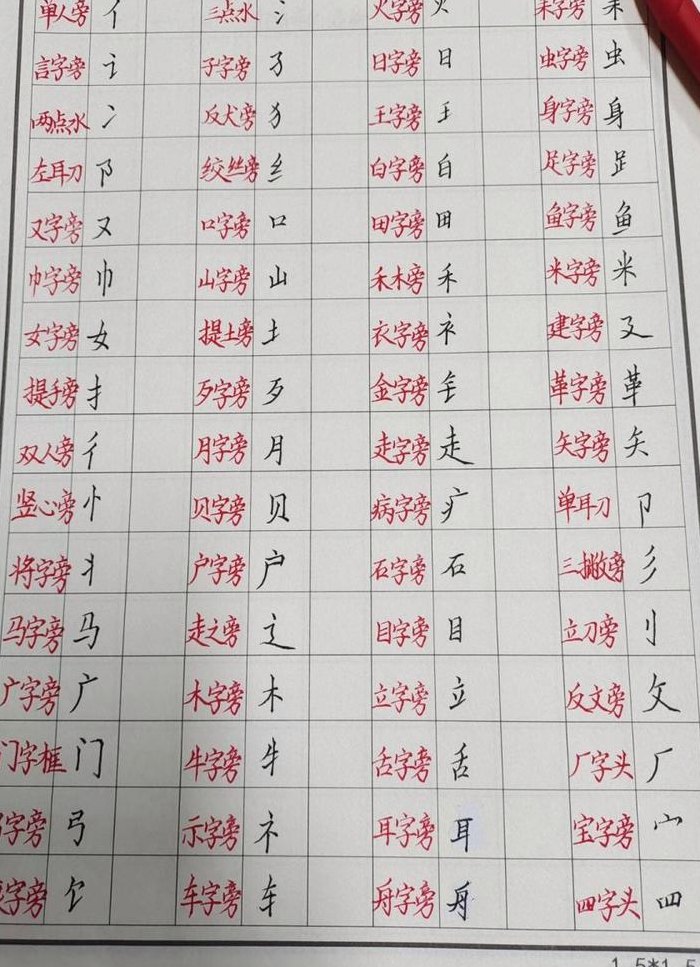 单人旁 亻 三点水 氵 火字旁 火 耒字旁 耒
言字旁 讠 子字旁 孑 日字旁 日 虫字旁 虫
两点水 冫 反犬旁 犭 王字旁 王 身字旁 身
左耳刀 阝 绞丝旁 纟 白字旁 白 足字旁 𧾷
又字旁 又 口字旁 口 田字旁 田 鱼字旁 鱼
巾字旁 巾 山字旁 山 禾木旁 禾 米字旁 米
女字旁 女 提土旁 土 衣字旁 衤 建字旁 廴
提手旁 扌 歹字旁 歹 金字旁 钅 革字旁 革
双人旁 彳 月字旁 月 走字旁 走 矢字旁 矢
竖心旁 忄 贝字旁 贝 病字旁 疒 单耳刀 卩
将字旁 丬 户字旁 户 石字旁 石 三撇旁 彡
马字旁 马 走之旁 辶 目字旁 目 立刀旁 刂
广字旁 广 木字旁 木 立字旁 立 反文旁 攵
门字框 门 牛字旁 牜 舌字旁 舌 厂字头 厂
字旁 弓 示字旁 礻 耳字旁 耳 宝字旁 宀
字旁 饣 车字旁 车 舟字旁 舟 四字头 四
1.5*1.5